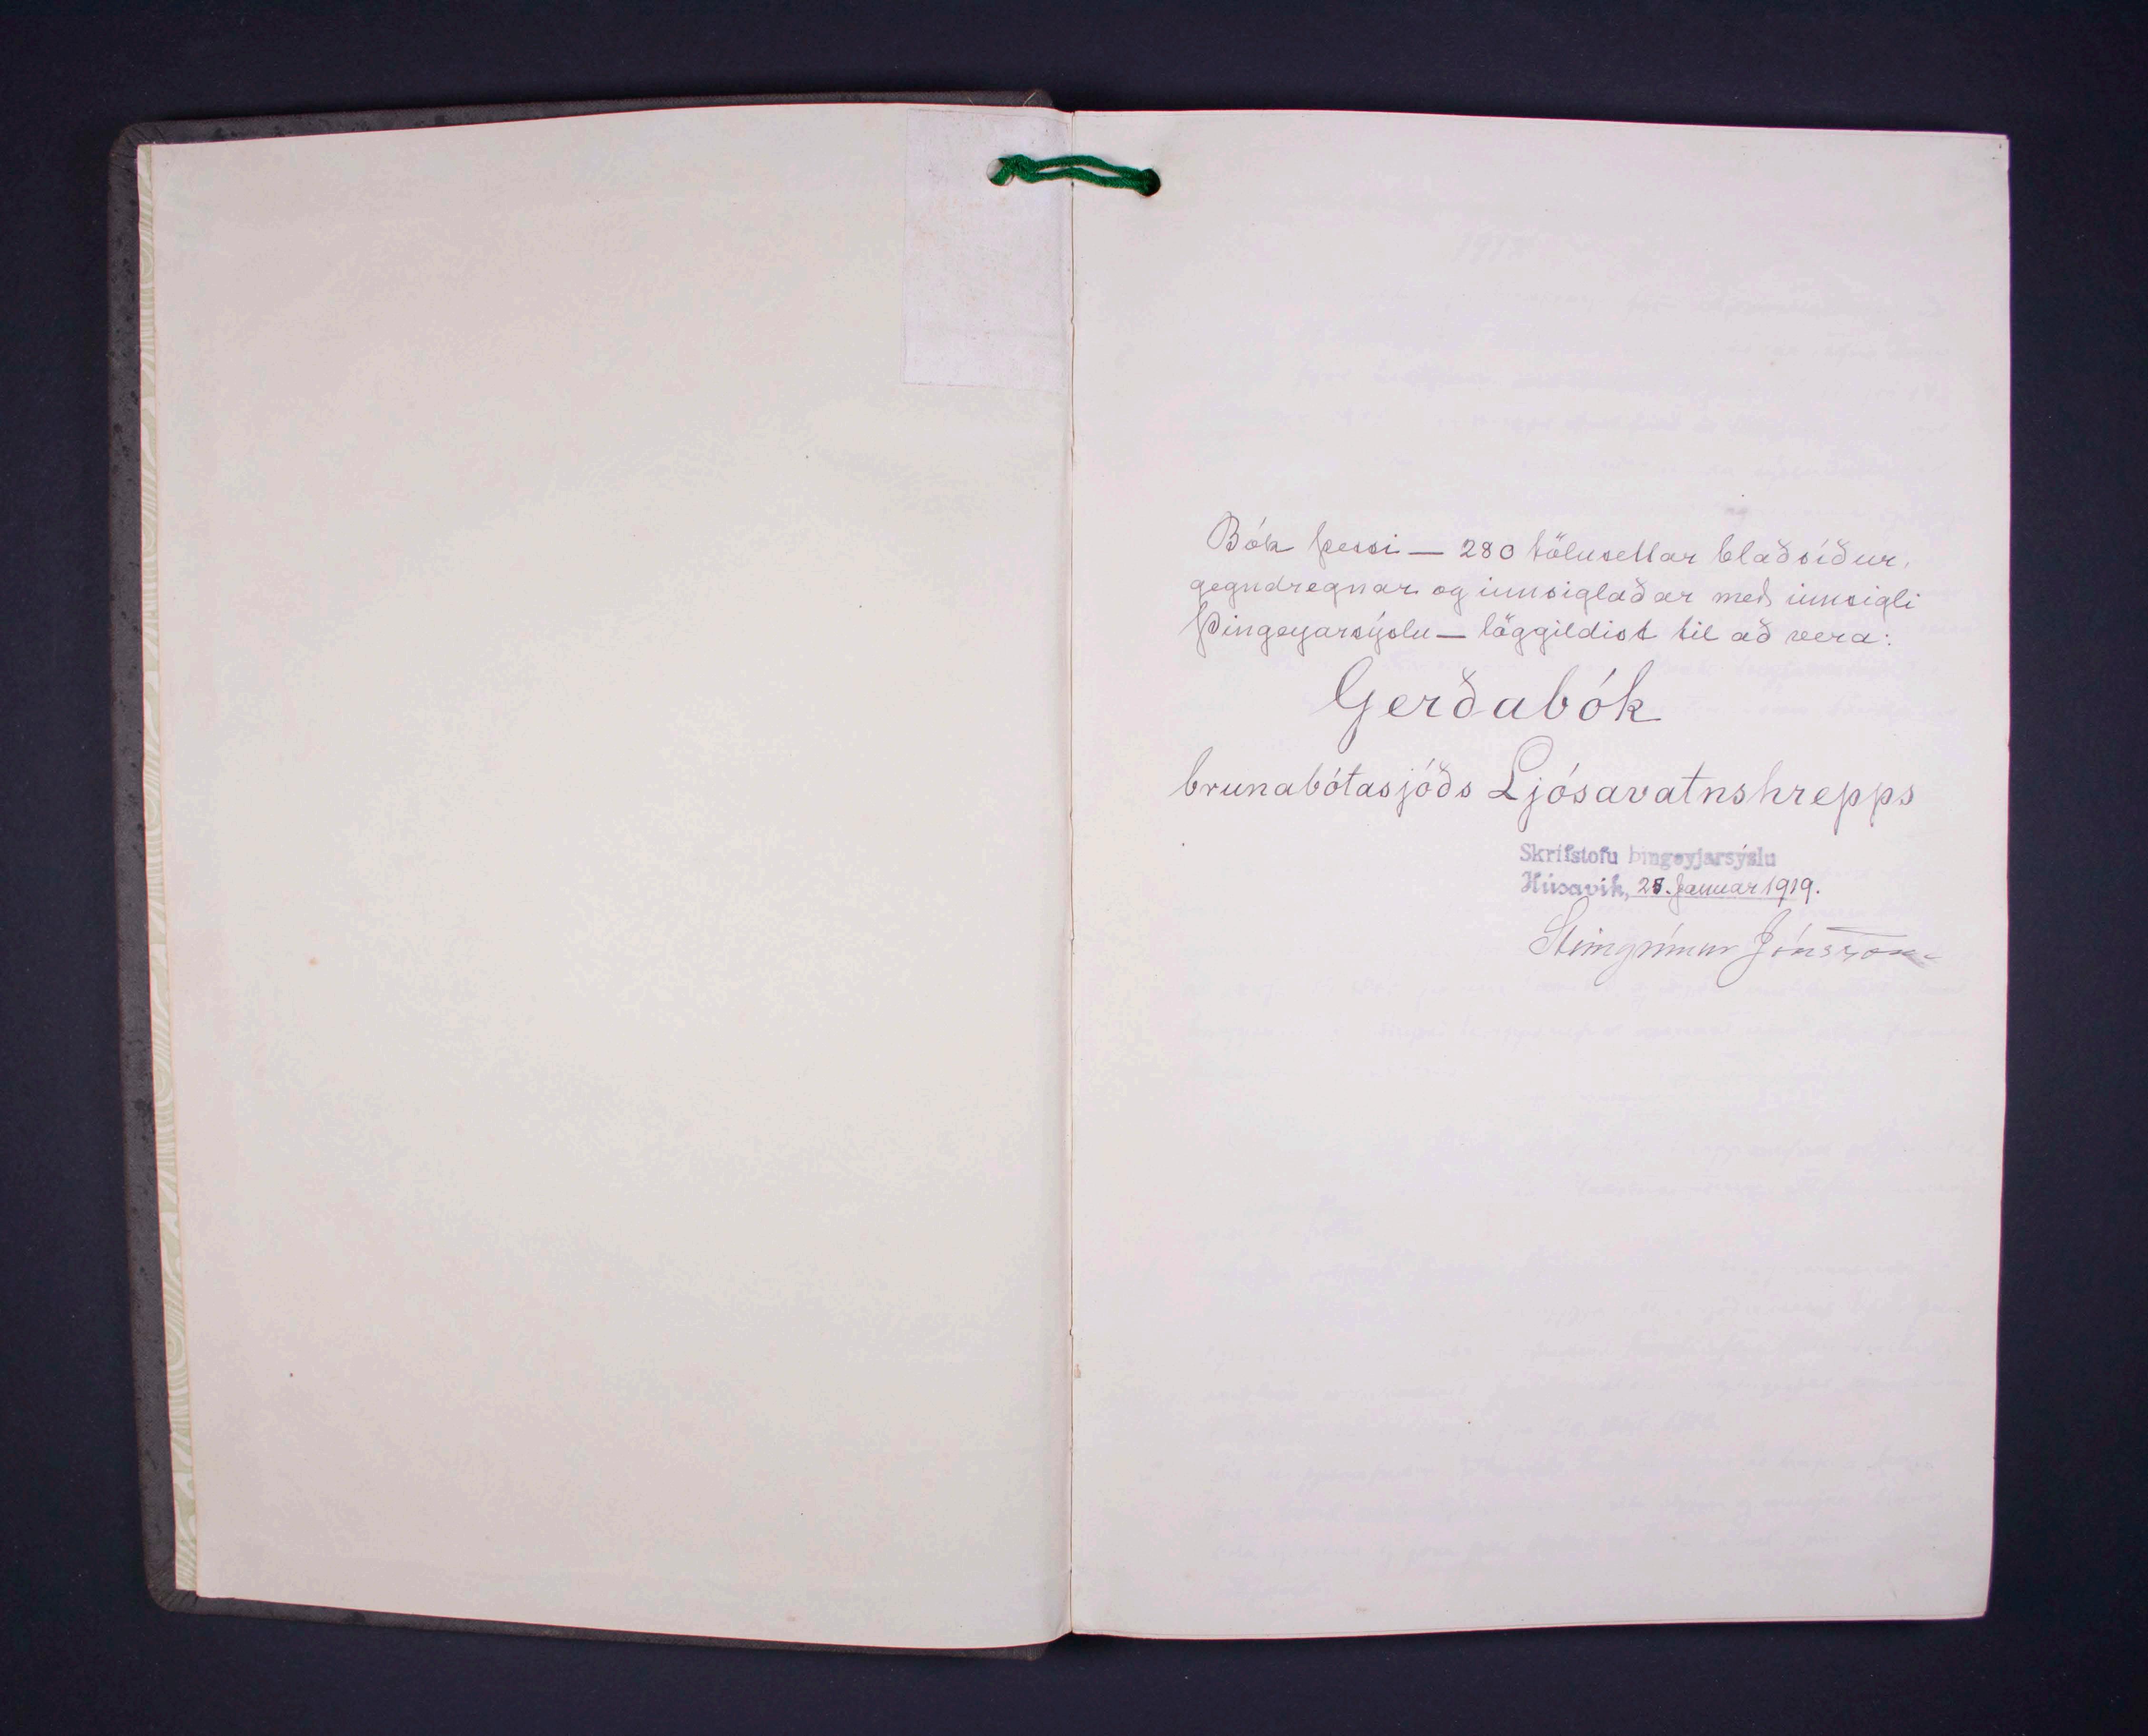 Bók þessi — 280 tölusettar blaðsíður,
gegndregnar og innsiglaðar með innsigli
Þingeyarsýslu — löggildist til að vera:
Gerðabók
brunabótasjóðs Ljósavatnshrepps
Skrifstofu Þingeyjarsýslu
Húsavík, 28. Januar 1919.
Steingrímur Jónsson